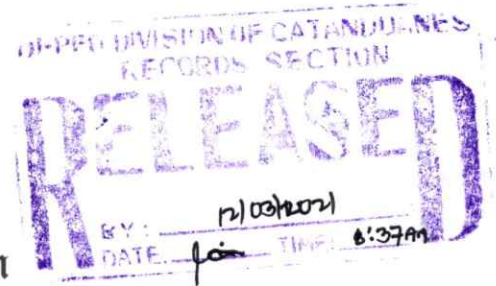 DEPED DIVISION OF CATANDUANES
RECORDS SECTION
RELEASED
BY: 12/03/2021
DATE: TIME: 8:37AM